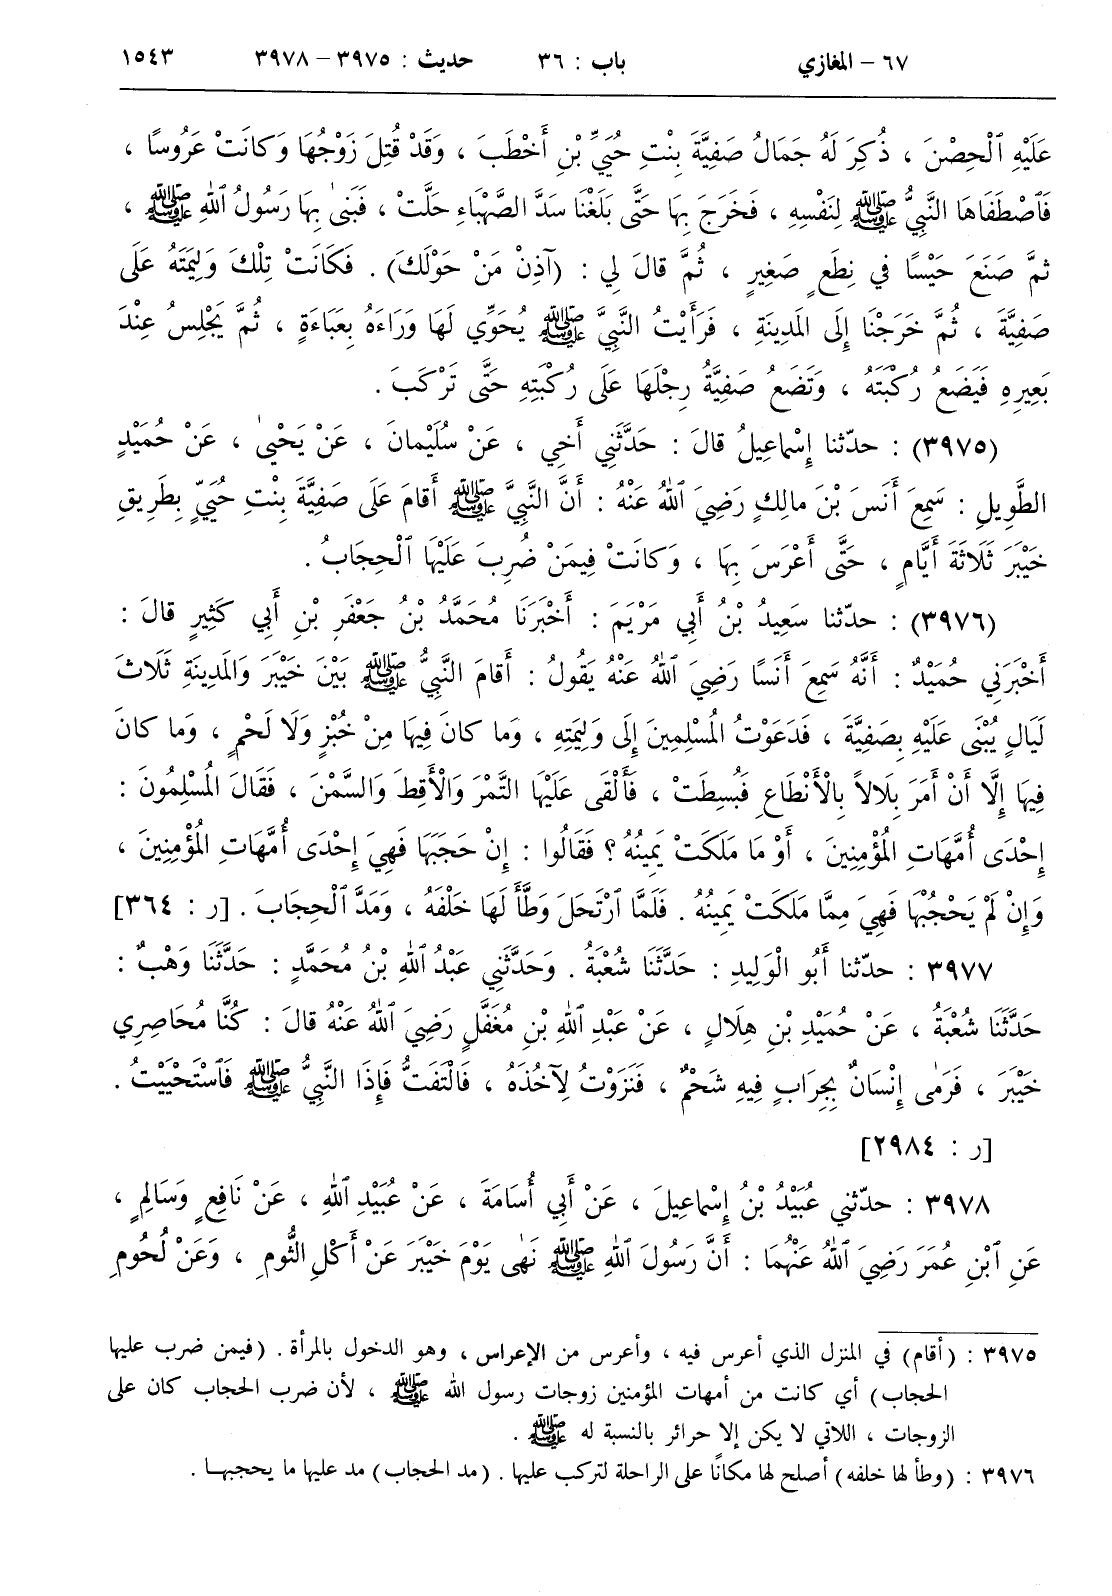 ٦٧ – المغازي باب : ٣٦ حديث : ٣٩٧٥ – ٣٩٧٨ ١٥٤٣
عَلَيْهِ ٱلْحِصْنَ ، ذُكِرَ لَهُ جَمَالُ صَفِيَّةَ بِنْتِ حُيَيِّ بْنِ أَخْطَبَ ، وَقَدْ قُتِلَ زَوْجُهَا وَكانَتْ عَرُوسًا ،
فَٱصْطَفَاهَا النَّبِيُّ ﷺ لِنَفْسِهِ ، فَخَرَجَ بِهَا حَتَّى بَلَغْنَا سَدَّ الصَّهْبَاءِ حَلَّتْ ، فَبَنىٰ بِهَا رَسُولُ اللهِ ﷺ ،
ثمَّ صَنَعَ حَيْسًا في نِطَعٍ صَغِيرٍ ، ثُمَّ قالَ لِي : (آذِنْ مَنْ حَوْلَكَ) . فَكَانَتْ تِلْكَ وَلِيمَتَهُ عَلَى
صَفِيَّةَ ، ثُمَّ خَرَجْنَا إِلَى المَدِينَةِ ، فَرَأَيْتُ النَّبِيَّ ﷺ يُحَوِّي لَهَا وَرَاءَهُ بِعَبَاءَةٍ ، ثُمَّ يَجْلِسُ عِنْدَ
بَعِيرِهِ فَيَضَعُ رُكْبَتَهُ ، وَتَضَعُ صَفِيَّةُ رِجْلَهَا عَلَى رُكْبَتِهِ حَتَّى تَرْكَبَ .
(٣٩٧٥) : حدّثنا إِسْماعِيلُ قالَ : حَدَّثَنِي أَخِي ، عَنْ سُلَيْمانَ ، عَنْ يَحْيىٰ ، عَنْ حُمَيْدٍ
الطَّوِيلِ : سَمِعَ أَنَسَ بْنَ مالِكٍ رَضِيَ ٱللهُ عَنْهُ : أَنَّ النَّبِيَّ ﷺ أَقامَ عَلَى صَفِيَّةَ بِنْتِ حُيَيٍّ بِطَرِيقِ
خَيْبَرَ ثَلَاثَةَ أَيَّامٍ ، حَتَّى أَعْرَسَ بِهَا ، وَكانَتْ فِيمَنْ ضُرِبَ عَلَيْهَا ٱلْحِجَابُ .
(٣٩٧٦) : حدّثنا سَعِيدُ بْنُ أَبِي مَرْيَمَ : أَخْبَرَنَا مُحَمَّدُ بْنُ جَعْفَرِ بْنِ أَبِي كَثِيرٍ قالَ :
أَخْبَرَنِي حُمَيْدٌ : أَنَّهُ سَمِعَ أَنَسًا رَضِيَ ٱللهُ عَنْهُ يَقُولُ : أَقامَ النَّبِيُّ ﷺ بَيْنَ خَيْبَرَ وَالمَدِينَةِ ثَلَاثَ
لَيَالٍ يُبْنَى عَلَيْهِ بِصَفِيَّةَ ، فَدَعَوْتُ المُسْلِمِينَ إِلَى وَلِيمَتِهِ ، وَما كانَ فِيهَا مِنْ خُبْزٍ وَلَا لَحْمٍ ، وَما كانَ
فِيهَا إِلَّا أَنْ أَمَرَ بِلَالاً بِالْأَنْطَاعِ فَبُسِطَتْ ، فَأَلْقَى عَلَيْهَا التَّمْرَ وَالْأَقِطَ وَالسَّمْنَ ، فَقَالَ المُسْلِمُونَ :
إِحْدَى أُمَّهَاتِ المُؤْمِنِينَ ، أَوْ مَا مَلَكَتْ يَمِينُهُ ؟ فَقَالُوا : إِنْ حَجَبَهَا فَهِيَ إِحْدَى أُمَّهَاتِ المُؤْمِنِينَ ،
وَإِنْ لَمْ يَحْجُبْهَا فَهِيَ مِمَّا مَلَكَتْ يَمِينُهُ . فَلَمَّا ٱرْتَحَلَ وَطَّأَ لَهَا خَلْفَهُ ، وَمَدَّ ٱلْحِجَابَ . [ر : ٣٦٤]
٣٩٧٧ : حدّثنا أَبُو الْوَلِيدِ : حَدَّثَنَا شُعْبَةُ . وَحَدَّثَنِي عَبْدُ ٱللهِ بْنُ مُحَمَّدٍ : حَدَّثَنَا وَهْبٌ :
حَدَّثَنَا شُعْبَةُ ، عَنْ حُمَيْدِ بْنِ هِلَالٍ ، عَنْ عَبْدِ ٱللهِ بْنِ مُغَفَّلٍ رَضِيَ ٱللهُ عَنْهُ قالَ : كُنَّا مُحَاصِرِي
خَيْبَرَ ، فَرَمٰى إِنْسَانٌ بِجِرَابٍ فِيهِ شَحْمٌ ، فَنَزَوْتُ لِآخُذَهُ ، فَالْتَفَتُّ فَإِذَا النَّبِيُّ ﷺ فَٱسْتَحْيَيْتُ .
[ر : ٢٩٨٤]
٣٩٧٨ : حدّثني عُبَيْدُ بْنُ إِسْماعِيلَ ، عَنْ أَبِي أُسَامَةَ ، عَنْ عُبَيْدِ ٱللهِ ، عَنْ نَافِعٍ وَسَالِمٍ ،
عَنِ ٱبْنِ عُمَرَ رَضِيَ ٱللهُ عَنْهُمَا : أَنَّ رَسُولَ ٱللهِ ﷺ نَهٰى يَوْمَ خَيْبَرَ عَنْ أَكْلِ الثُّومِ ، وَعَنْ لُحُومِ
٣٩٧٥ : (أقام) في المنزل الذي أعرس فيه ، وأعرس من الإعراس ، وهو الدخول بالمرأة . (فيمن ضرب عليها
الحجاب) أي كانت من أمهات المؤمنين زوجات رسول الله ﷺ ، لأن ضرب الحجاب كان على
الزوجات ، اللاتي لا يكن إلا حرائر بالنسبة له ﷺ .
٣٩٧٦ : (وطأ لها خلفه) أصلح لها مكانًا على الراحلة لتركب عليها . (مد الحجاب) مد عليها ما يحجبها .